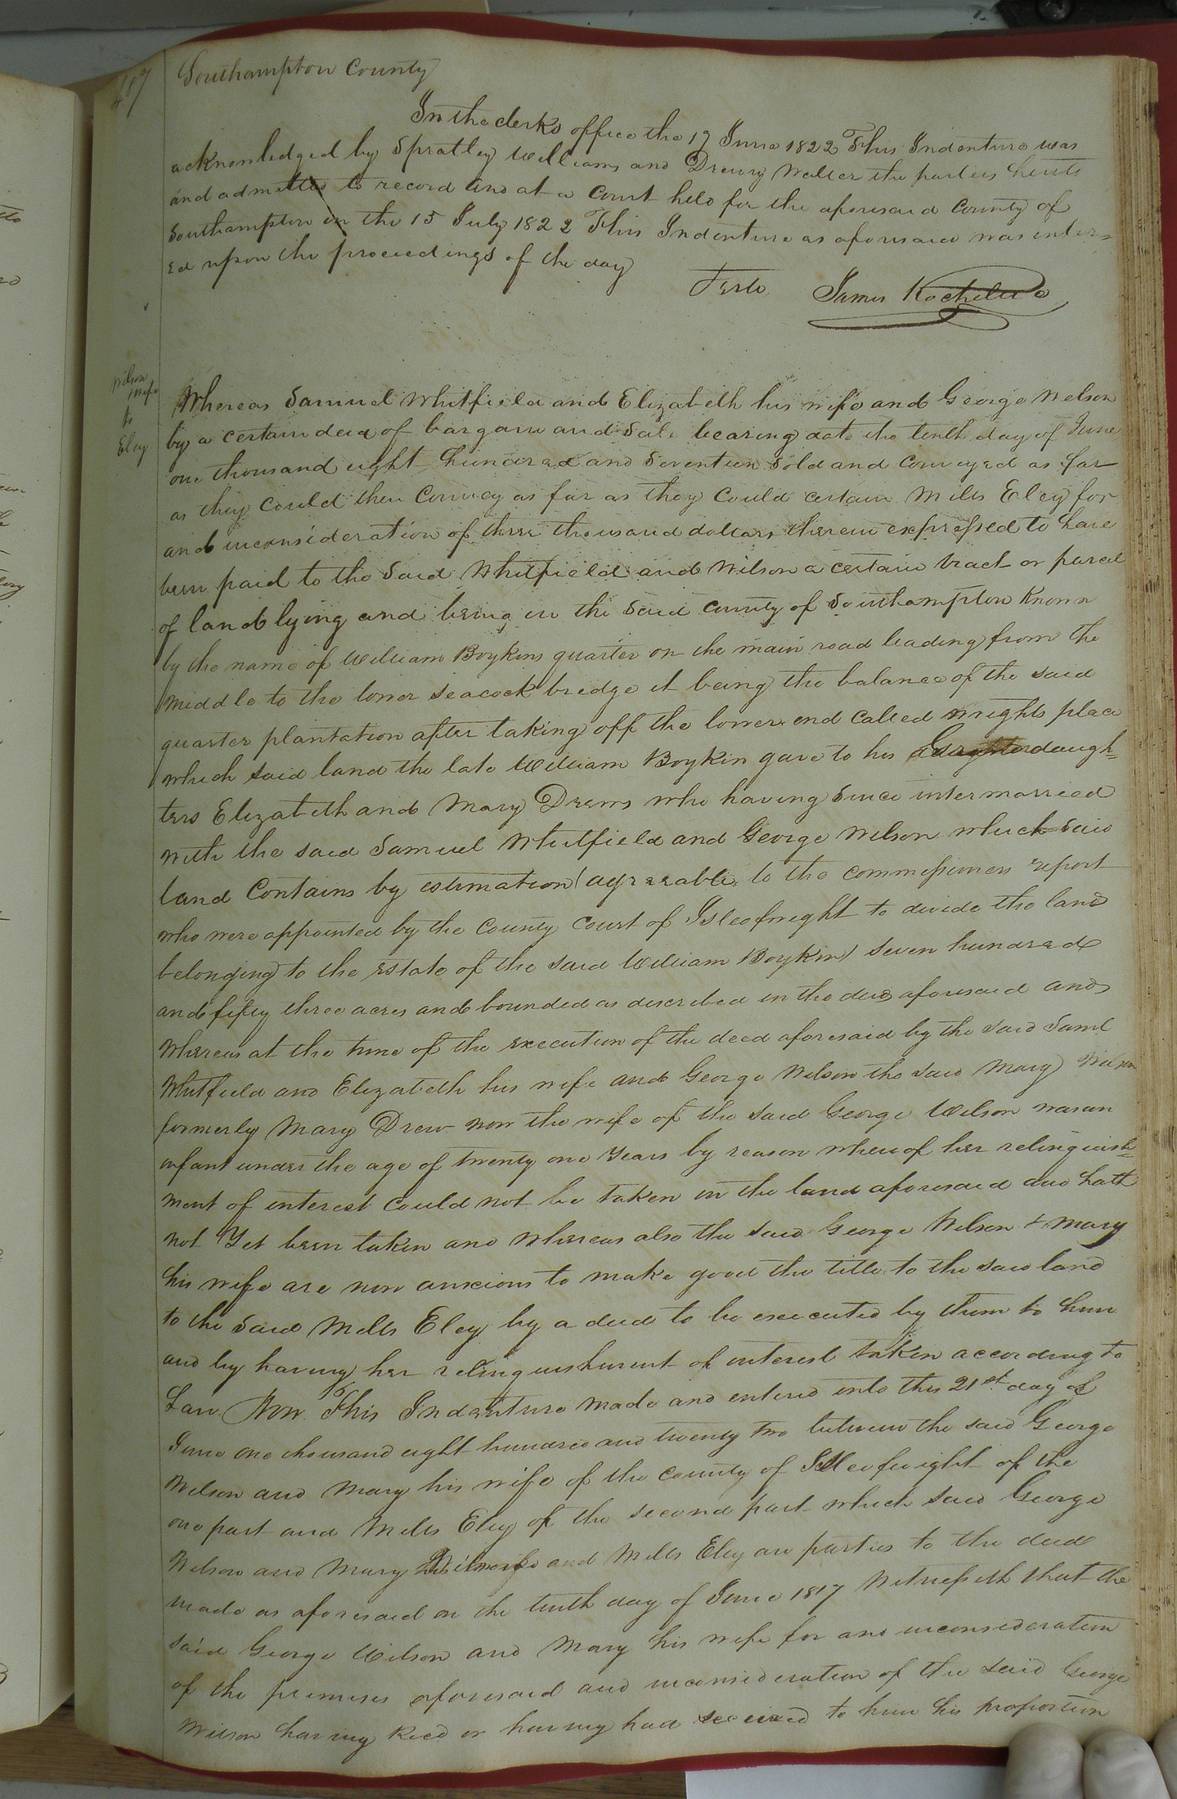 417
Southampton County
In the clerks office the 17 June 1822 This Indenture was
acknowledged by Spratley Williams and Drewry Waller the parties hereto
and admitted to record and at a Court held for the aforesaid County of
Southampton on the 15 July 1822 This Indenture as aforesaid was enter-
ed upon the proceedings of the day
Teste James Rochelle
Wilson
& wife
to
Eley
Whereas Samuel Whitfield and Elizabeth his wife and George Wilson
by a certain deed of bargain and Sale bearing date the tenth day of June
one thousand eight hundred and Seventeen Sold and Conveyed as far
as they could then Convey as far as they Could certain Mills Eley for
and inconsideration of three thousand dollars therein expressed to have
been paid to the Said Whitfield and Wilson a certain tract or parcel
of land lying and being in the Said County of Southampton Known
by the name of William Boykins quarter on the main road leading from the
middle to the lower Seacock bridge it being the balance of the said
quarter plantation after taking off the lower end called wrights place
which said land the late William Boykin gave to his daugh-
ters Elizabeth and Mary Drews who having Since intermarried
with the said Samuel Whitfield and George Wilson which Said
land Contains by estimation (agreeable to the commissioners report
who were appointed by the County Court of Isleofwight to divide the land
belonging to the Estate of the said William Boykin) Seven hundred
and fifty three acres and bounded as described in the deed aforesaid and
Whereas at the time of the execution of the deed aforesaid by the said Saml
Whitfield and Elizabeth his wife and George Wilson the said Mary Wilson
formerly Mary Drew now the wife of the said George Wilson was an
infant under the age of twenty one Years by reason whereof her relinquish-
ment of interest could not be taken in the land aforesaid and hath
not Yet been taken and whereas also the said George Wilson & Mary
his wife are now anxious to make good the title to the said land
to the said Mills Eley by a deed to be executed by them to him
and by having her relinquishment of interest taken according to
Law Now This Indenture made and entered into this 21st day of
June one thousand eight hundred and twenty two between the said George
Wilson and Mary his wife of the county of Isleofwight of the
one part and Mills Eley of the second part which said George
Wilson and Mary his wife and Mills Eley are parties to the deed
made as aforesaid on the tenth day of June 1817 Witnesseth that the
said George Wilson and Mary his wife for and inconsideration
of the premises aforesaid and inconsideration of the said George
Wilson having Recd or having had secured to him his proportion